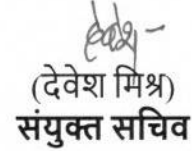 देवेश -
(देवेश मिश्र)
संयुक्त सचिव